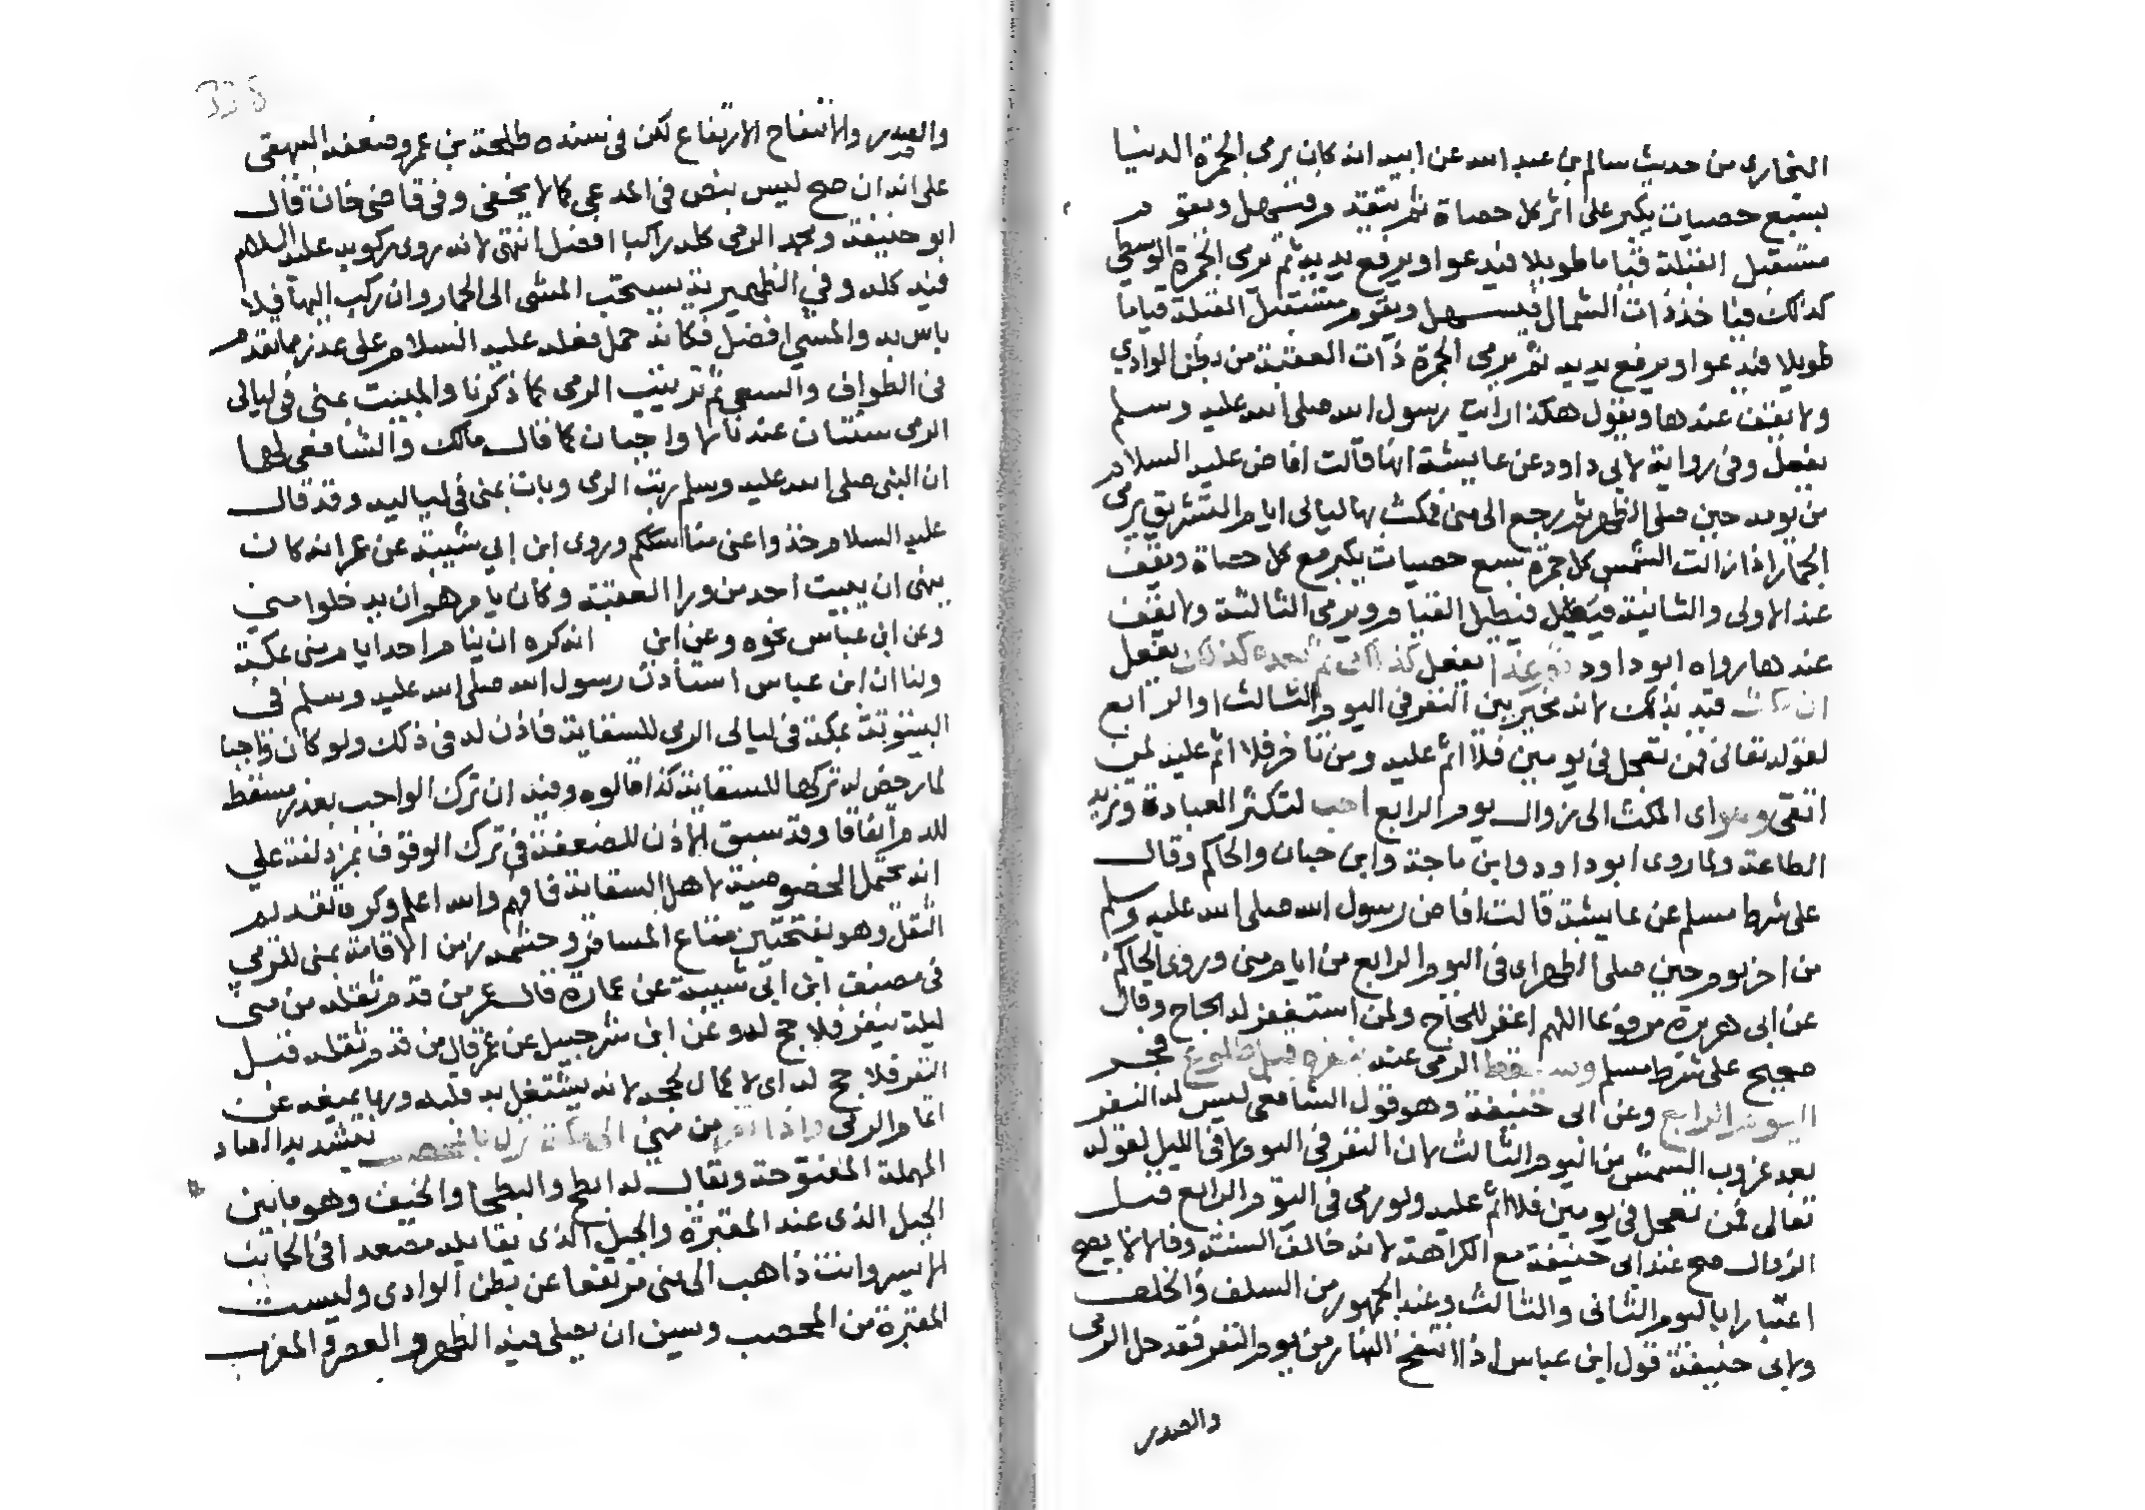 البخاري من حديث سالم بن عبد الله عن ابيه انه كان يرمي الجمرة الدنيا
بسبع حصيات يكبر على اثر كل حصاة ثم يتقدم فيسهل ويقوم
مستقبل القبلة قياما طويلا فيدعوا ويرفع يديه ثم يرمي الجمرة الوسطي
كذلك فياخذ ذات الشمال فيسهل ويقوم مستقبل القبلة قياما
طويلا فيدعوا ويرفع يديه ثم يرمي الجمرة ذات العقبة من بطن الوادي
ولا يقف عندها ويقول هكذا رايت رسول الله صلى الله عليه وسلم
يفعل وفي رواية لابي داود عن عايشة انها قالت افاض عليه السلام
من يومه حين صلى الظهر ثم رجع الى منى فمكث بها ليالى ايام التشريق يرمي
الجمار اذا زالت الشمس كل جمرة بسبع حصيات يكبر مع كل حصاة ويقف
عند الاولى والثانية فيطيل القيام ويرمي الثالثة ولا يقف
عندها رواه ابو داود يفعل كذلك ثم بعده كذلك يفعل
ان مكث قيد بذلك لانه مخير بين النفر في اليوم الثالث او الرابع
لقوله تعالى فمن تعجل في يومين فلا اثم عليه ومن تاخر فلا اثم عليه لمن
اتقى وهو اى المكث الى زوال يوم الرابع احب لتكثر العبادة وتزيد
الطاعة ولما روى ابو داود وابن ماجة وابن حبان والحاكم وقال
على شرط مسلم عن عايشة قالت افاض رسول الله صلى الله عليه وسلم
من اخر يوم حين صلى الظهر اى في اليوم الرابع من ايام منى وروى الحاكم
عن ابي هريرة مرفوعا اللهم اغفر للحاج ولمن استغفر له الحاج وقال
صحيح على شرط مسلم وسقط الرمي عند بنفره قبل طلوع فجر
اليوم الرابع وعن ابي حنيفة وهو قول الشافعي ليس له النفر
بعد غروب الشمس من اليوم الثالث لان النفر في اليوم لا في الليل لقوله
تعالى فمن تعجل في يومين فلا اثم عليه ولو رمى في اليوم الرابع قبل
الزوال صح عند ابي حنيفة مع الكراهة لانه خالف السنة وقالا لا يصح
اعتبارا باليوم الثاني والثالث وعند الجمهور من السلف والخلف
ولابي حنيفة قول ابن عباس اذا انتفخ النهار من يوم النفر فقد حل الرمي
والصدر
والصدر والانتفاخ الارتفاع لكن في سنده طلحة بن عمرو ضعفه البيهقي
على انه ان صح ليس بنص في المدعي كما لا يخفى وفي قاضي خان قال
ابو حنيفة ومحمد الرمي كله راكبا افضل انتهى لانه روى ركوبه عليه السلام
فيه كله وفي الظهيرية يستحب المشي الى الجمار وان ركب اليها فلا
باس به والمشي افضل فكانه حمل فعله عليه السلام على عذر ما تقدم
في الطواف والسعي ثم ترتيب الرمي كما ذكرنا والمبيت بمنى في ليالى
الرمي سنتان عندنا لا واجبان كما قال مالك والشافعي لهما
ان النبي صلى الله عليه وسلم رتب الرمي وبات بمنى في لياليه وقد قال
عليه السلام خذوا عني مناسككم وروى ابن ابي شيبة عن عمر انه كان
ينهى ان يبيت احد من ورا العقبة وكان يامرهم ان يدخلوا منى
وعن ابن عباس نحوه وعن ابن انه كره ان ينام احد ايام منى بمكة
ولنا ان ابن عباس استاذن رسول الله صلى الله عليه وسلم في
البيتوتة بمكة في ليالي الرمي للسقاية فاذن له في ذلك ولو كان واجبا
لما رخص له تركها للسقاية كذا قالوه وفيه ان ترك الواجب بعذر مسقط
للدم اتفاقا وقد سبق الاذن للضعفة في ترك الوقوف بمزدلفة على
انه يحتمل الخصوصية لاهل السقاية فافهم والله اعلم وكره تقديم
الثقل وهو بفتحتين متاع المسافر وحشمه زمن الاقامة بمنى للرمي
في مصنف ابن ابي شيبة عن عمارة قال عمر من قدم ثقله من منى
ليلة ينفر فلا حج له وعن ابن شرحبيل عن عمر قال من قدم ثقله قبل
النفر فلا حج له اى لا كمال لحجه لانه يشتغل به قلبه وربما يمنعه عن
اتمام الرمي واذا نفر من منى الى مكة نزل بالمحصب بتشديد الصاد
المهملة المفتوحة ويقال له ابطح والبطحا والخيف وهو ما بين
الجبل الذي عند المقبرة والجبل الذي يقابله مصعدا في الجانب
الايسر وانت ذاهب الى منى مرتفعا عن بطن الوادي وليست
المقبرة من المحصب وسن ان يصلى فيه الظهر والعصر والمغرب